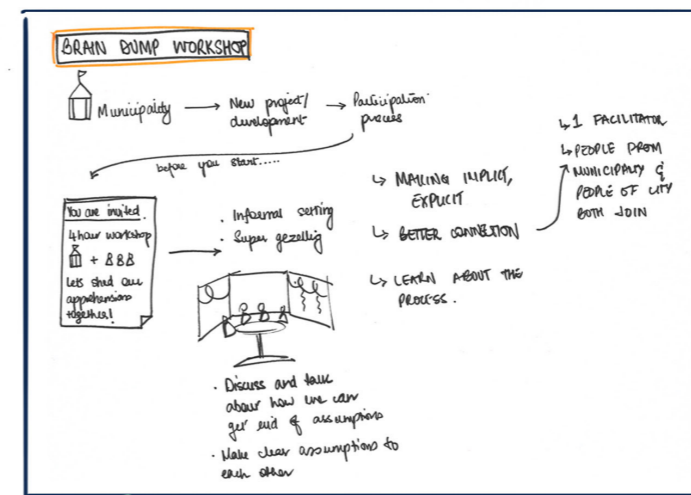 BRAIN DUMP WORKSHOP
Municipality → New project/
development → Participation
process
before you start.....
You are invited
4 hour workshop
+
Lets shed our
apprehensions
together!
• Informal setting
• Super gezellig
• Discuss and talk
about how we can
get rid of assumptions
• Make clear assumptions to
each other
↳ MAKING IMPLICT,
EXPLICIT
↳ BETTER CONNECTION
↳ LEARN ABOUT THE
PROCESS.
↳ 1 FACILITATOR
↳ PEOPLE FROM
MUNICIPALITY &
PEOPLE OF CITY
BOTH JOIN